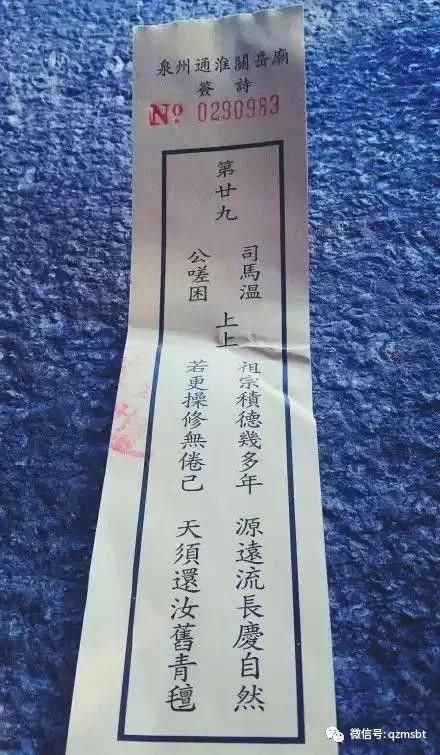 泉州通淮關岳廟
簽詩
Nº 0290983
第廿九
上上
司馬溫
公嗟困
祖宗積德幾多年
源遠流長慶自然
若更操修無倦己
天須還汝舊青氊
微信号: qzmsbt